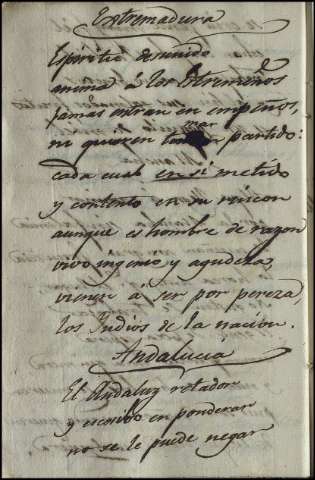 Extremadura
Espiritu desunido
anima à los Extremeños
jamas entran en empeños,
ni quieren tomar partido:
cada cual en sí metido
y contento en su rincon
aunque es hombre de razon
vivo ingenio y agudeza,
viene à ser por pereza,
los Indios de la nacion.
Andalucia
El Andaluz retador
y escesibo en ponderar
no se le puede negar